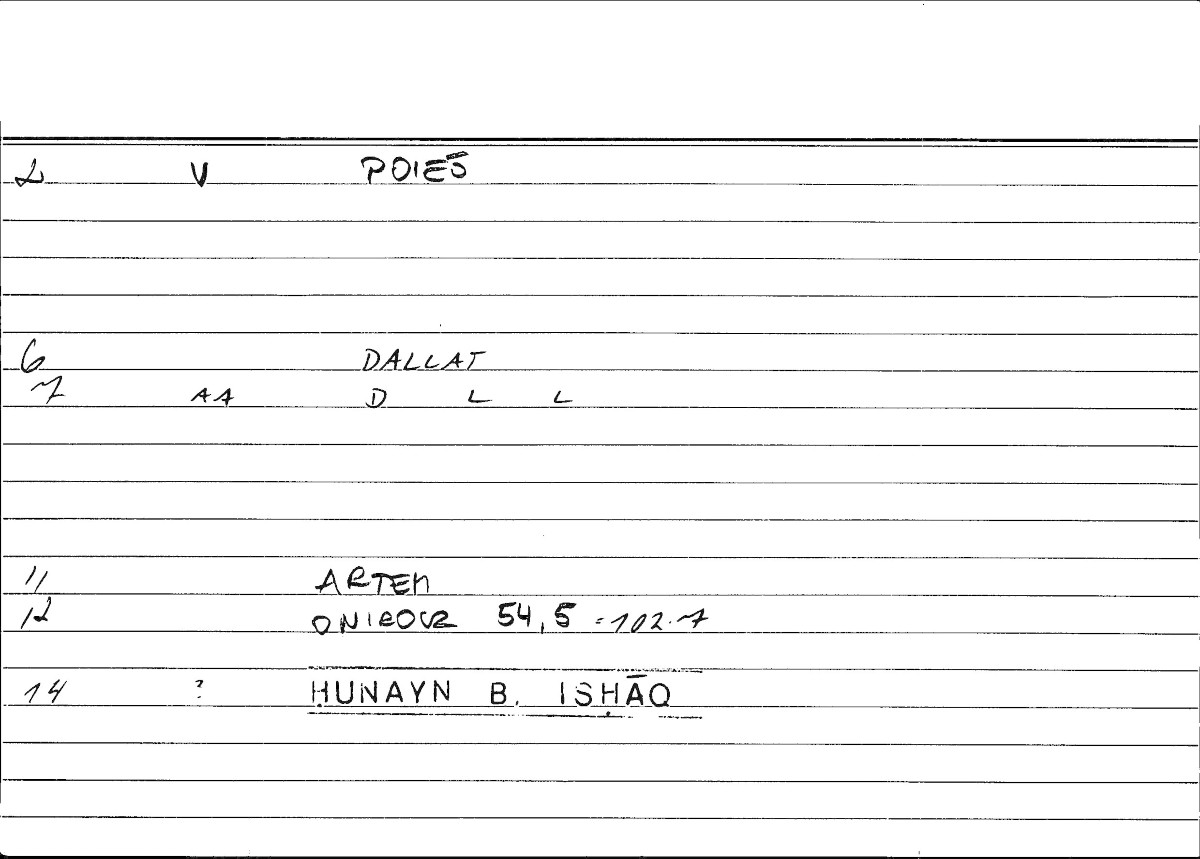 2 V POIĒS
6 DALLAT
7 AA D L L
11 ARTEM
12 ONIROCR 54,5 = 102.7
14 ? ḤUNAYN B. ISḤĀQ